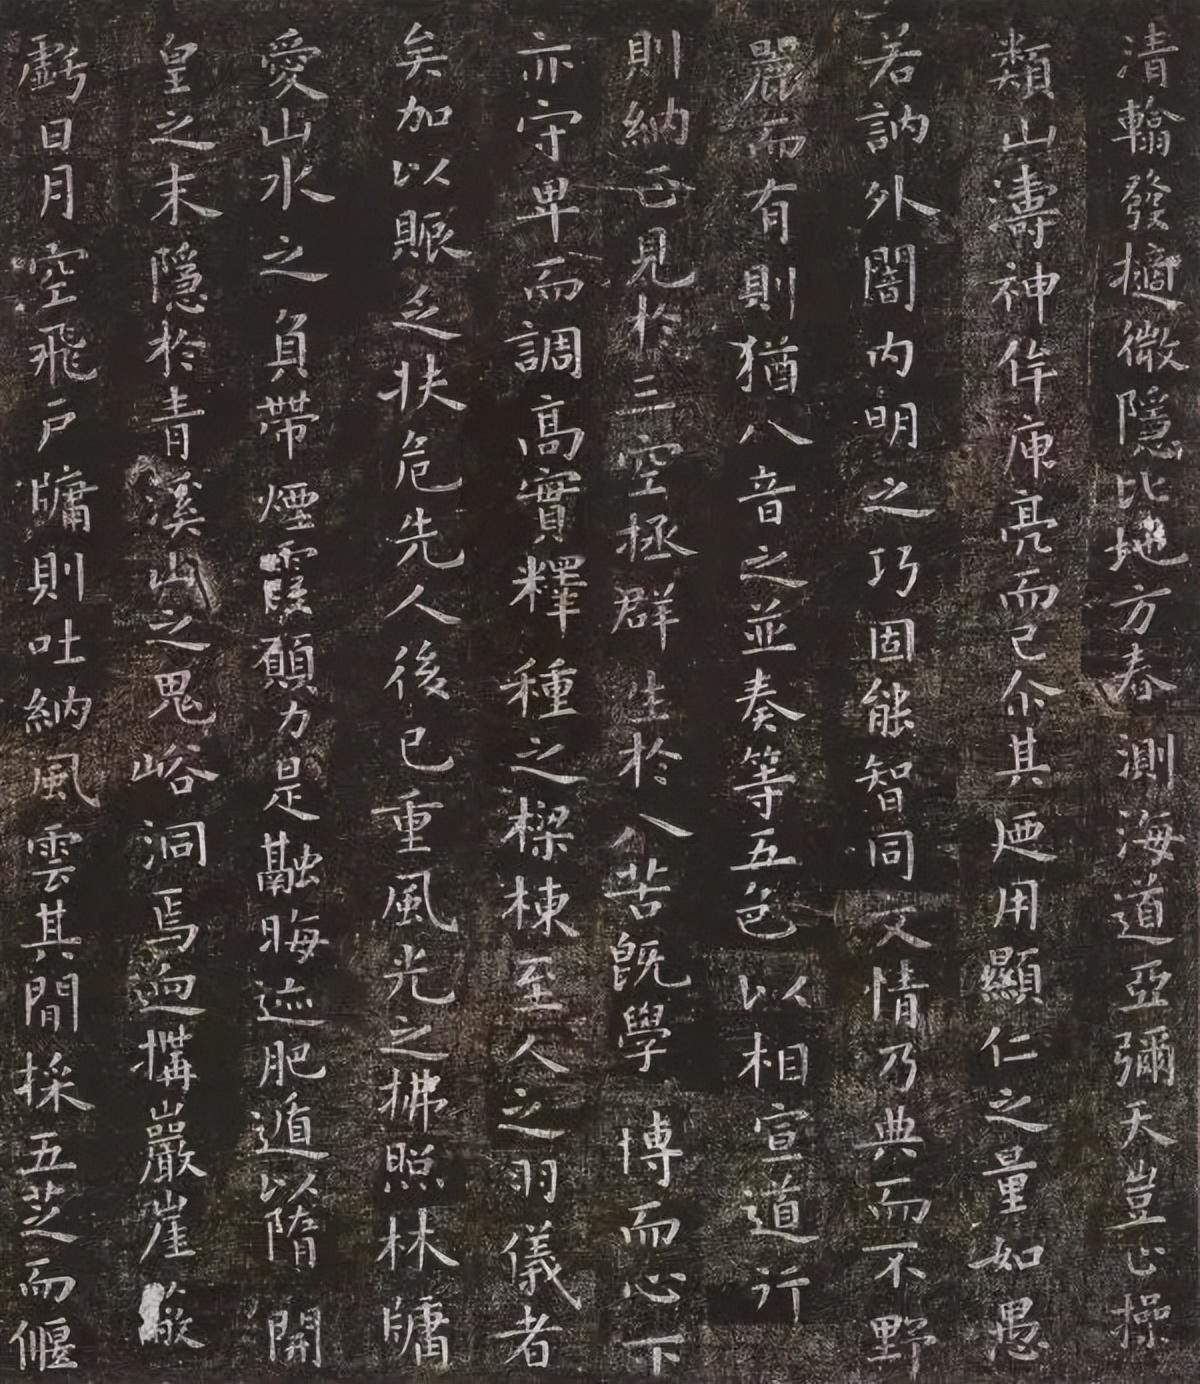 清翰發擿微隱比地方春測海道亞彌天豈止操
類山濤神侔庾亮而已尒其迺用顯仁之量如愚
若訥外闇内明之巧固能智同文情乃典而不野
麗而有則猶八音之並奏等五色以相宣道行
則納正見於三空拯群生於八苦既學博而心下
亦守卑而調高實釋種之樑棟至人之羽儀者
矣加以賑乏扶危先人後已重風光之拂照林牖
愛山水之負帶煙霞願力是融晦迹肥遁以隋開
皇之末隱於青溪山之鬼峪洞焉迺構巖崖蔽
虧日月空飛戶牖則吐納風雲其間採五芝而偃